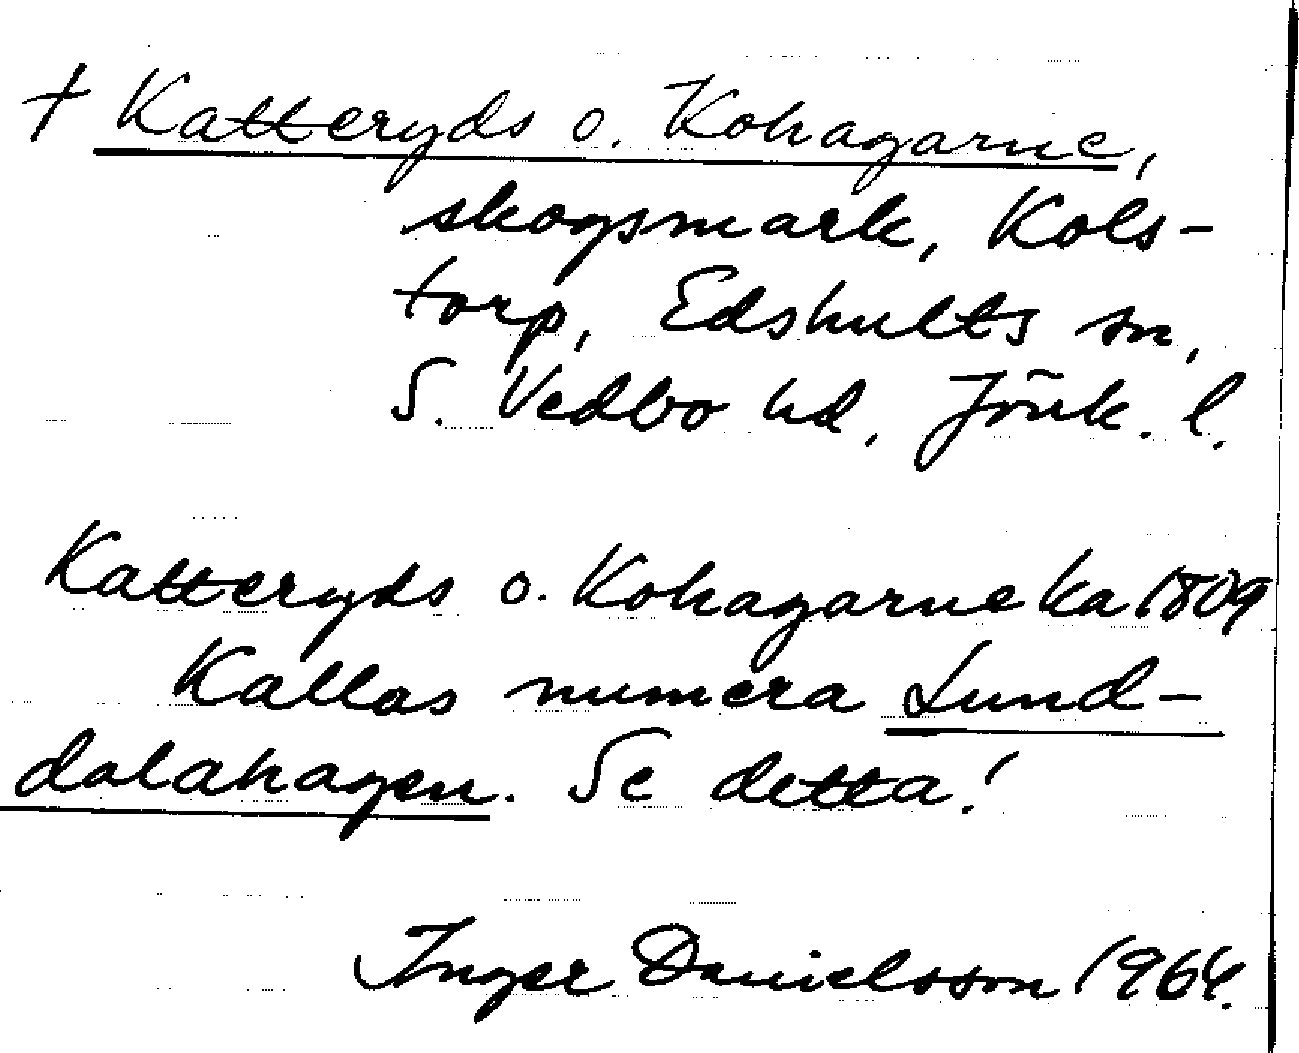 † Katteryds o. Kohagarne,
skogsmark, Kols-
torp, Edshults sn,
S. Vedbo hd, Jönk. l.
Katteryds o. Kohagarne ka 1809
Kallas numera Lund-
dalahagen. Se detta!
Inger Danielsson 1964.